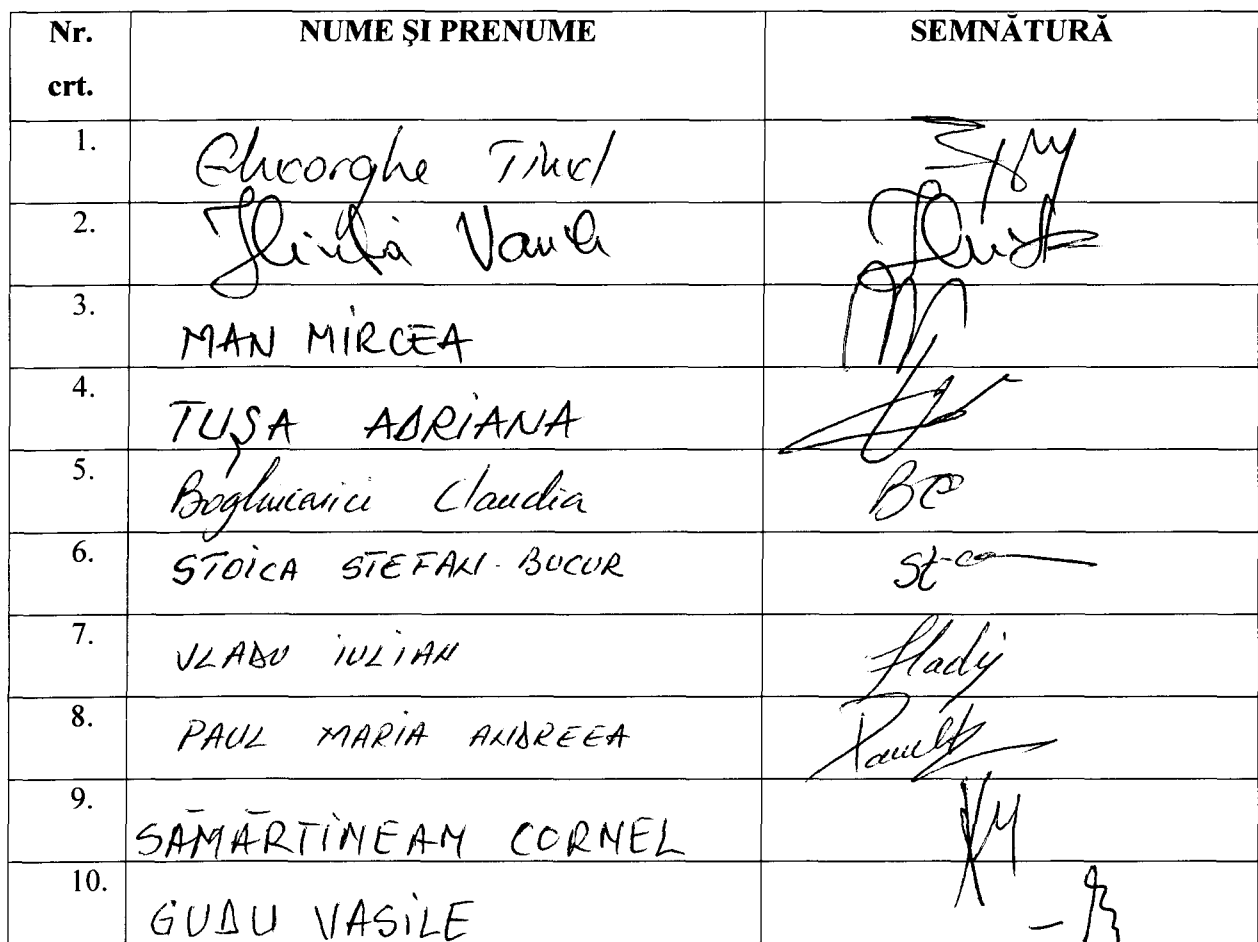 Nr. crt. NUME ŞI PRENUME SEMNĂTURĂ
1. Gheorghe Tinel
2.
3. MAN MIRCEA
4. TUŞA ADRIANA
5. Boghicevici Claudia
6. STOICA STEFAN-BUCUR
7. VLADU IULIAN
8. PAUL MARIA ANDREEA
9. SĂMĂRTINEAN CORNEL
10. GUDU VASILE